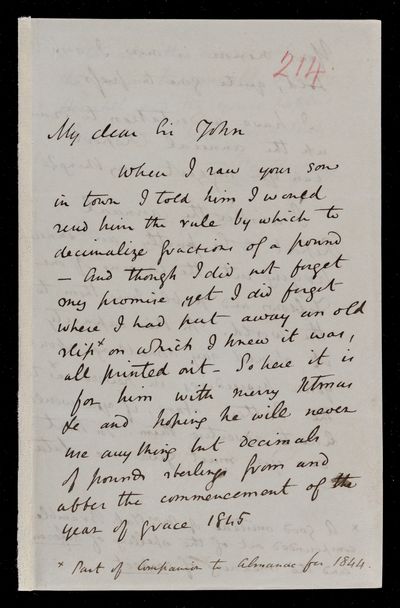 214
My dear Sir John
When I saw your son
in town I told him I would
send him the rule by which to
decimalize fractions of a pound
— And though I did not forget
my promise, yet I did forget
where I had put away an old
slip x on which I knew it was,
all printed out — So here it is
for him with merry Xtmas
&c and hoping he will never
use anything but decimals
of pounds sterling from and
after the commencement of the
year of grace 1845
x Part of Companion to Almanac for 1844.